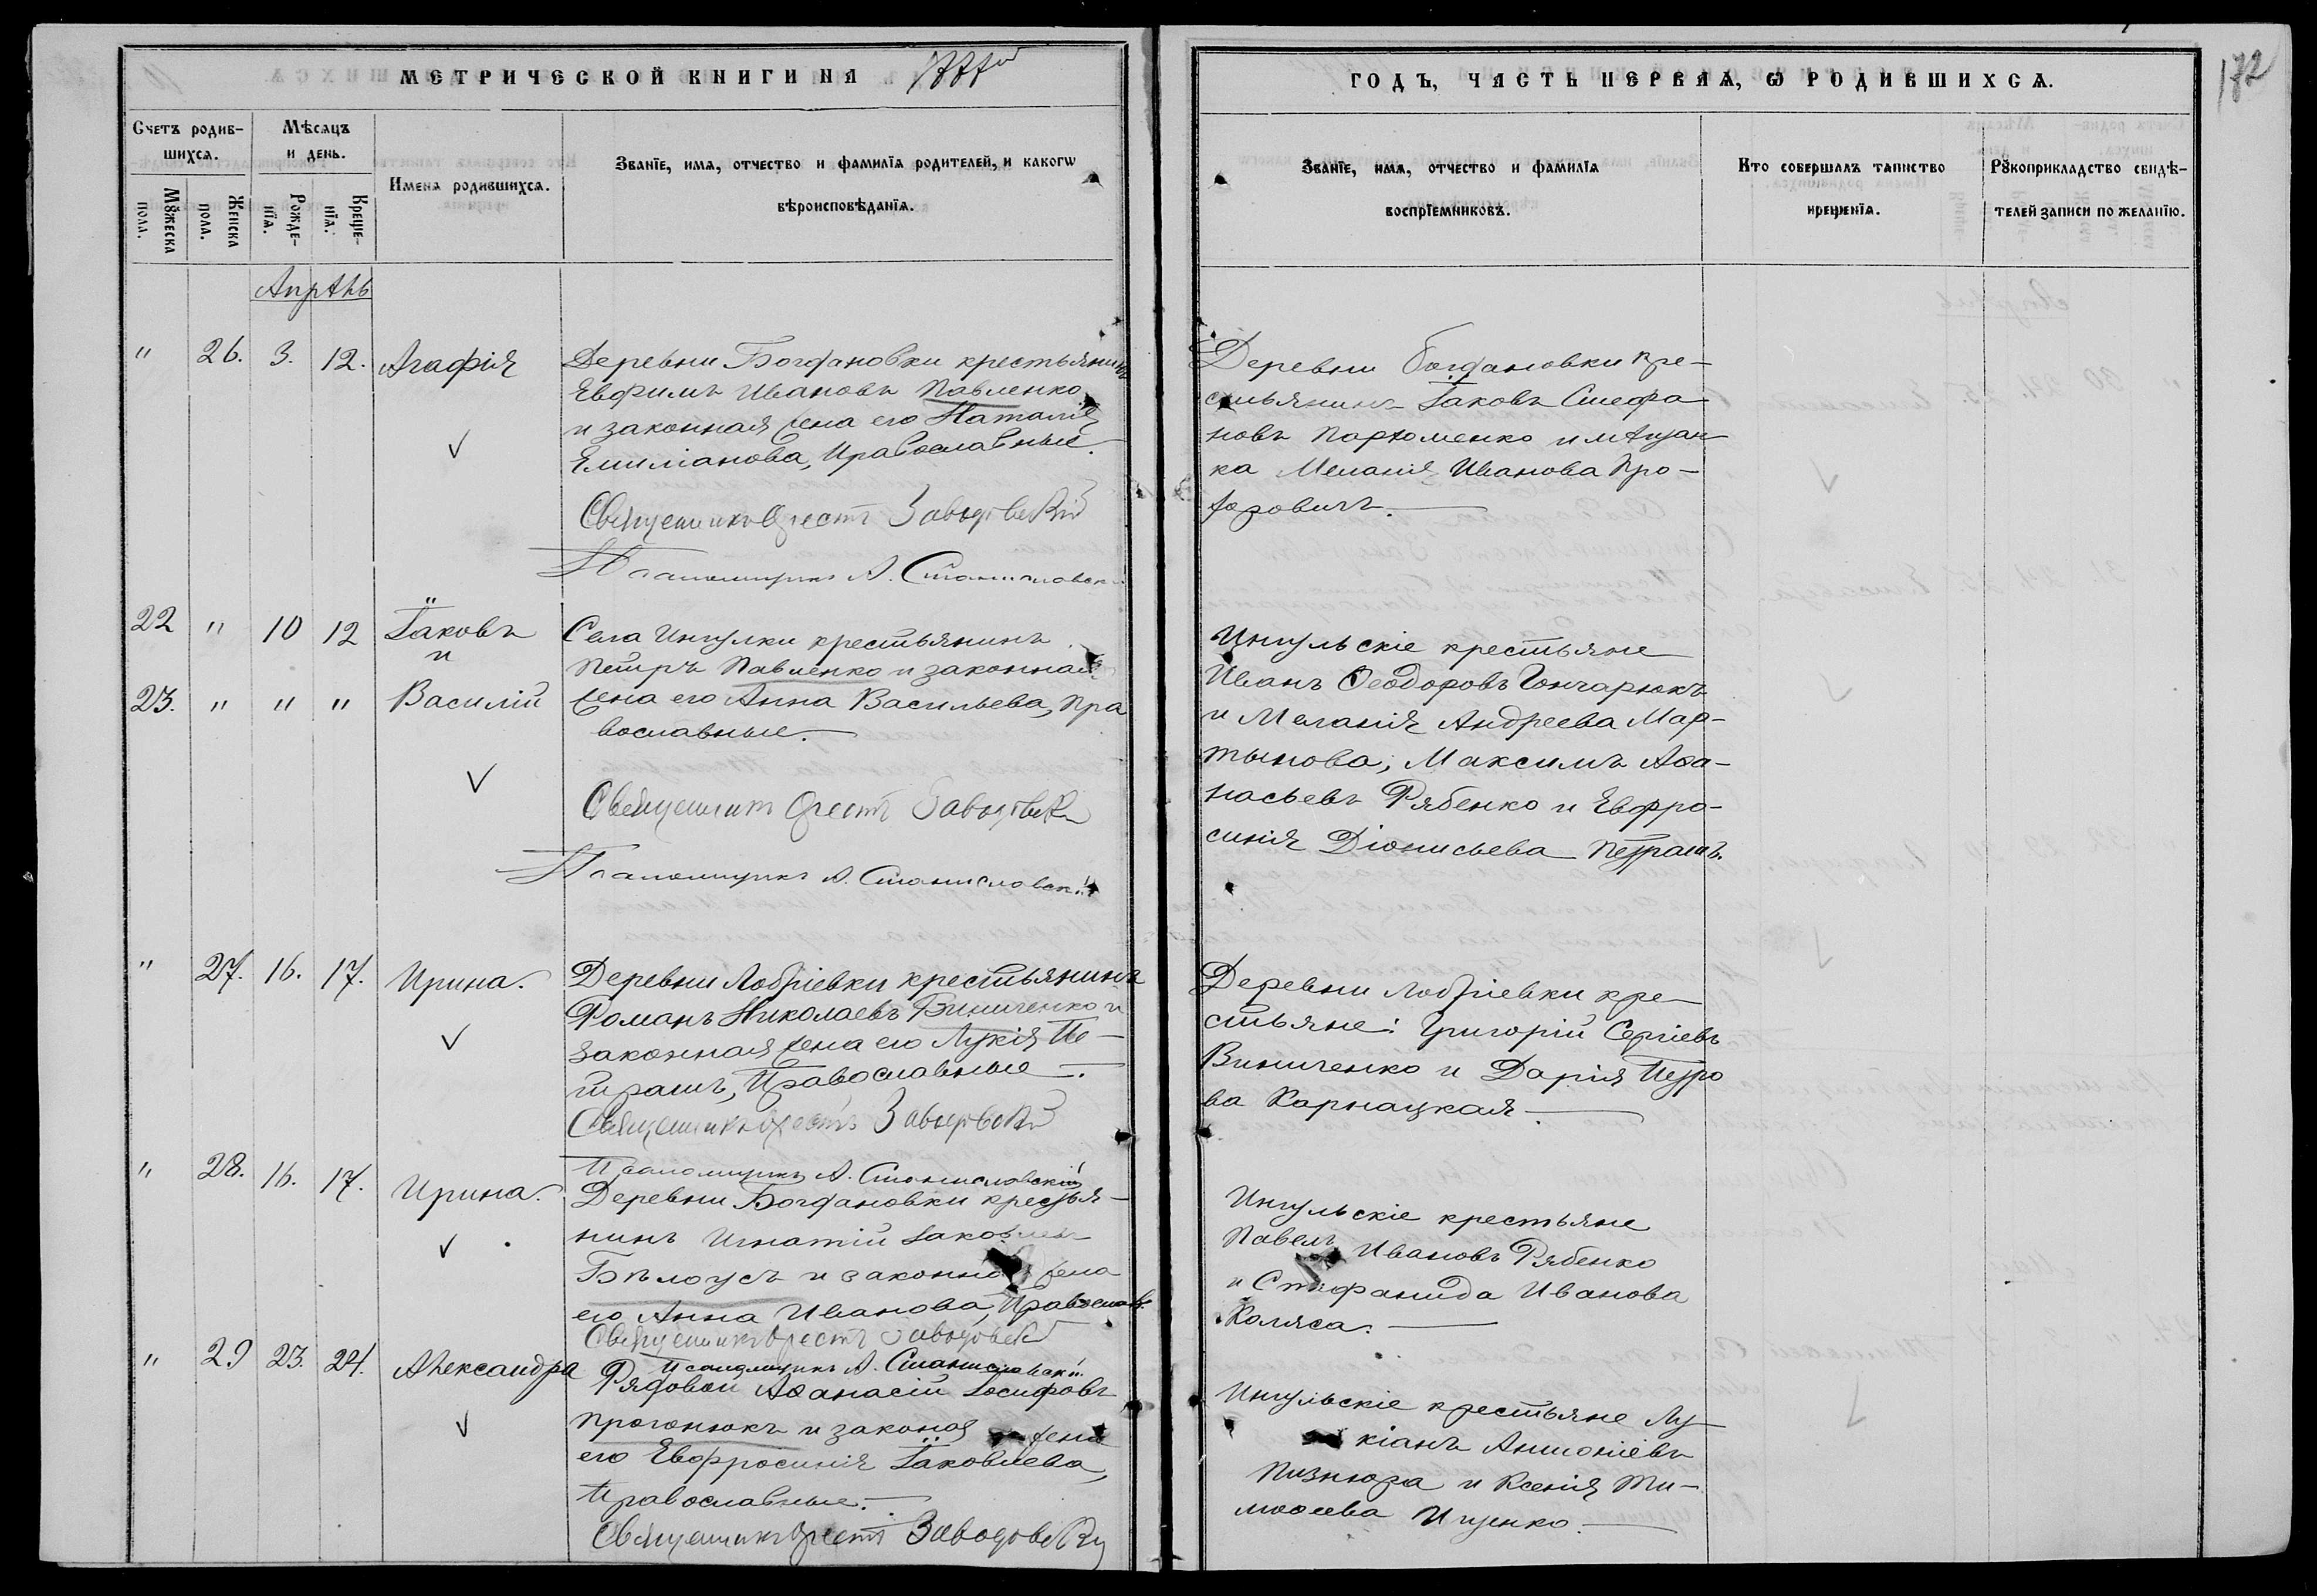 МЕТРИЧЕСКОЙ КНИГИ НА
ГОДЪ, ЧАСТЬ ПЕРВАѦ, Ѡ РОДИВШИХСѦ.
172
Счетъ родив-
шихсѧ.
Мѣсѧцъ
и день.
Имена родившихсѧ.
Званїе, имѧ, отчество и фамилїѧ родителей, и какогѡ
вѣроисповѣданїѧ.
Мꙋжеска
пола.
Женска
пола.
Рожде-
нїѧ.
Креще-
нїѧ.
Званїе, имѧ, отчество и фамилїѧ
воспрїемниковъ.
Кто совершалъ таинство
крещенїѧ.
Рꙋкоприкладство свидѣ-
телей записи по желанїю.
Апрѣль
" 26. 3. 12. Агафія
Деревни Богдановки крестьянинъ
Евфимъ Ивановъ Павленко
и законная жена его Наталія
Емиліанова, Православные.
Священникъ Орестъ Заводовскій
Псаломщикъ А. Станиславскій
Деревни Богдановки кре-
стьянинъ Іаковъ Стефа
новъ Пархоменко и мѣщан
ка Меланія Иванова Про-
22 " 10 12 Іаковъ
и
23. " " " Василій
Села Ингулки крестьянинъ
Петръ Павленко и законная
жена его Анна Васильева, Пра
вославные.
Священникъ Орестъ Заводовскій
Псаломщикъ А. Станиславскій
Ингульскіе крестьяне
Иванъ Ѳеодоровъ Гончарюкъ
и Меланія Андреева Мар-
тынова, Максимъ Аѳа-
насьевъ Рябенко и Евфро-
синія Діонисьева Петрашъ.
" 27. 16. 17. Ирина.
Деревни Лобріевки крестьянинъ
Романъ Николаевъ Виниченко и
законная жена его Лукія Пе-
трашъ, Православные.
Священникъ Орестъ Заводовскій
Псаломщикъ А. Станиславскій
Деревни Лобріевки кре-
стьяне: Григорій Сергіевъ
Виниченко и Дарія Петро
ва Карнацкая.
" 28. 16. 17. Ирина.
Деревни Богдановки кресья-
нинъ Игнатій Іаковлевъ
Бѣлоусъ и законная жена
его Анна Иванова, Православ.
Священникъ Орестъ Заводовскій
Псаломщикъ А. Станиславскій
Ингульскіе крестьяне
Павелъ Ивановъ Рябенко
и Стефанида Иванова
Коляса.
" 29 23. 24. Александра
Рядовой Аѳанасій Іосифовъ
Прогонюкъ и законая жена
его Евфросинія Іаковлева,
Православные.
Священникъ Орестъ Заводовскій
Ингульскіе крестьяне Лу
кіанъ Антоніевъ
Пизнюра и Ксенія Ти-
моѳеева Ищенко.